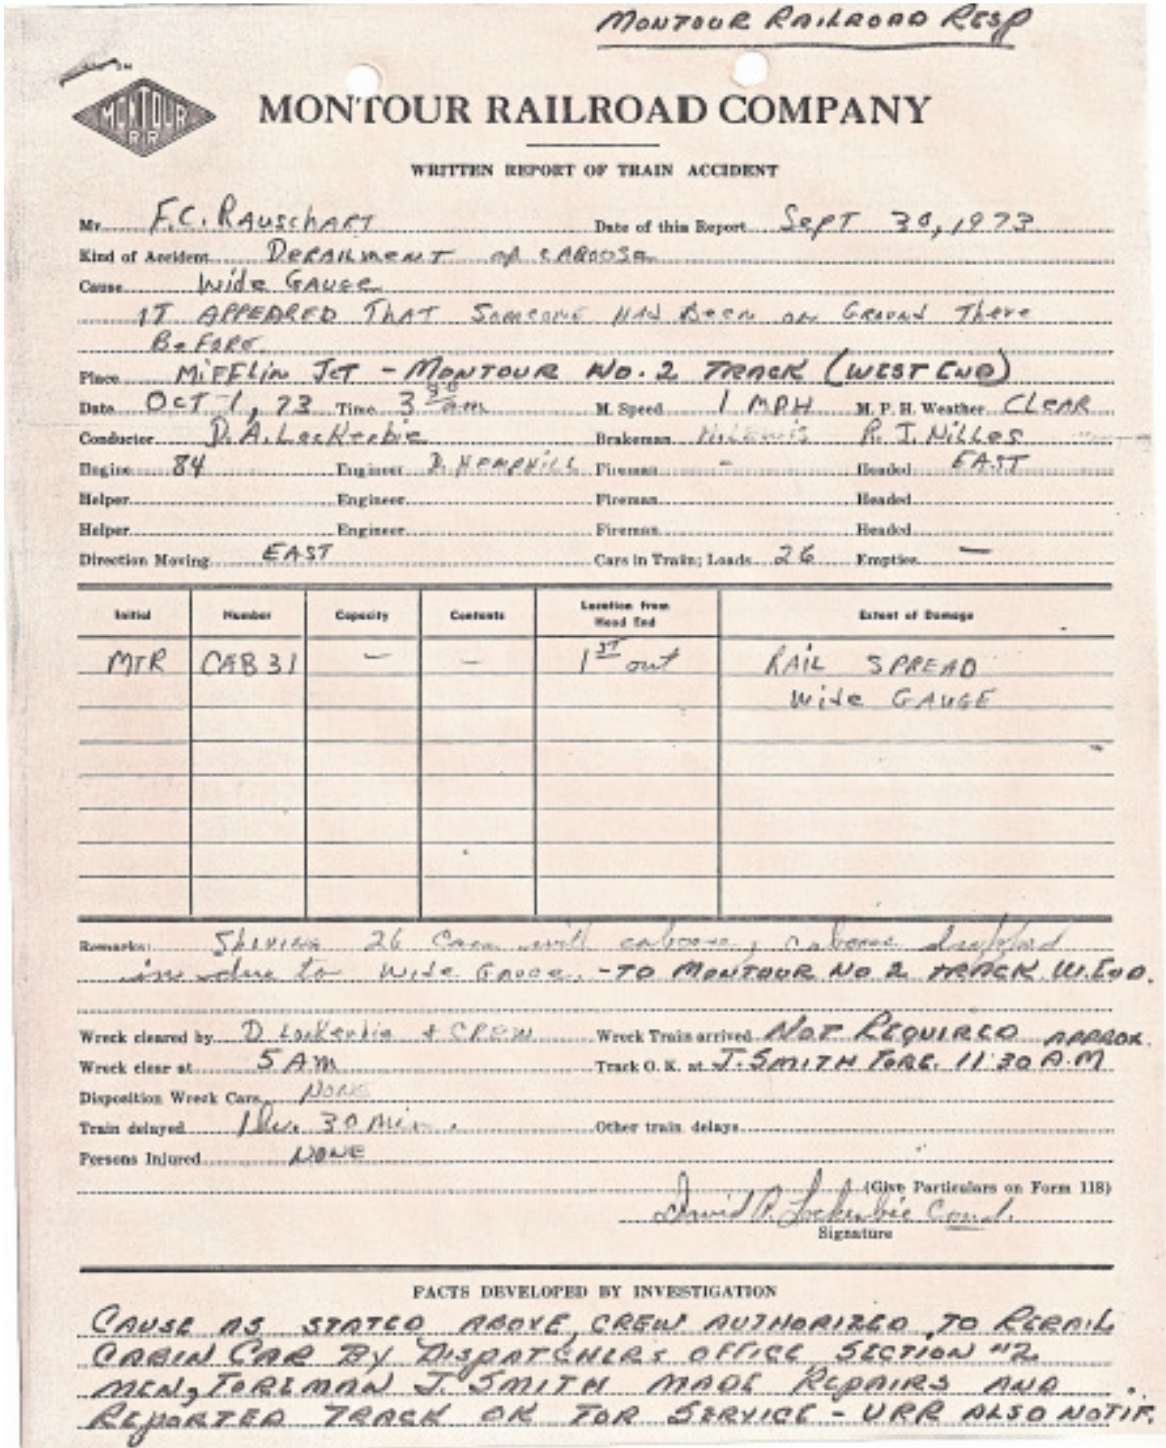 MONTOUR RAILROAD RESP
MONTOUR RR
MONTOUR RAILROAD COMPANY
WRITTEN REPORT OF TRAIN ACCIDENT
Mr. F.C. RAUSCHART Date of this Report SEPT 30, 1973
Kind of Accident DERAILMENT OF CABOOSE
Cause WIDE GAUGE
IT APPEARED THAT SOMEONE HAD BEEN ON GROUND THERE
BEFORE
Place MIFFLIN JCT - MONTOUR NO. 2 TRACK (WEST END)
Date OCT 1, 73 Time 3 30 am M. Speed 1 MPH M. P. H. Weather CLEAR
Conductor D. A. Lockerbie Brakeman H. LEWIS R. J. NILLES
Engine 84 Engineer D. HEMPHILL Fireman - Headed EAST
Helper Engineer Fireman Headed
Helper Engineer Fireman Headed
Direction Moving EAST Cars in Train; Loads 26 Empties —
Initial Number Capacity Contents Location from Head End Extent of Damage
MTR CAB 31 — — 1ST out RAIL SPREAD
WIDE GAUGE
Remarks: Shoving 26 Cars with caboose, caboose dropped
in due to WIDE GAUGE. - TO MONTOUR NO 2 TRACK W. END.
Wreck cleared by D Lockerbie + CREW Wreck Train arrived NOT REQUIRED APPROX.
Wreck clear at 5 AM Track O. K. at J. SMITH FORE. 11:30 A.M
Disposition Wreck Cars NONE
Train delayed 1 hr. 30 Min. Other train delays
Persons Injured NONE
(Give Particulars on Form 118)
David A. Lockerbie Cond.
Signature
FACTS DEVELOPED BY INVESTIGATION
CAUSE AS STATED ABOVE, CREW AUTHORIZED TO RERAIL
CABIN CAR BY DISPATCHERS OFFICE SECTION #2
MEN, FOREMAN J. SMITH MADE REPAIRS AND
REPORTED TRACK OK FOR SERVICE - URR ALSO NOTIF.